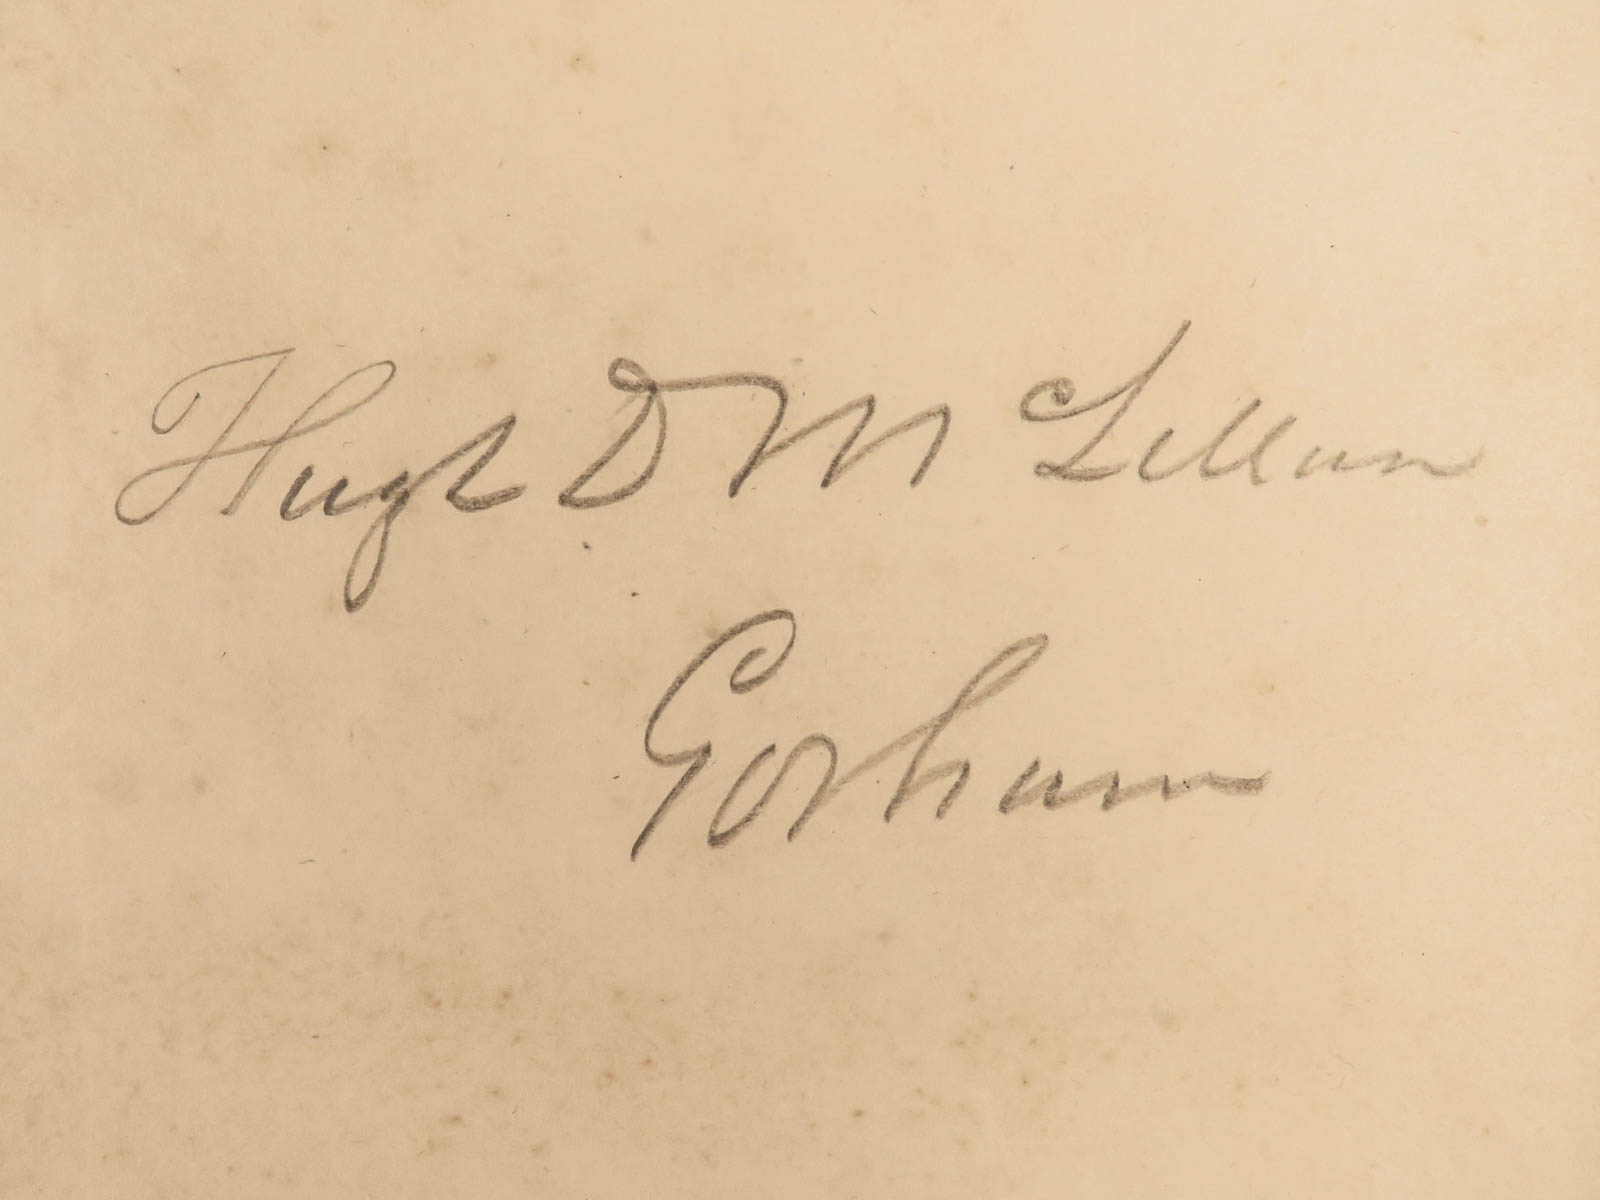 Hugh D McLellan
Gorham